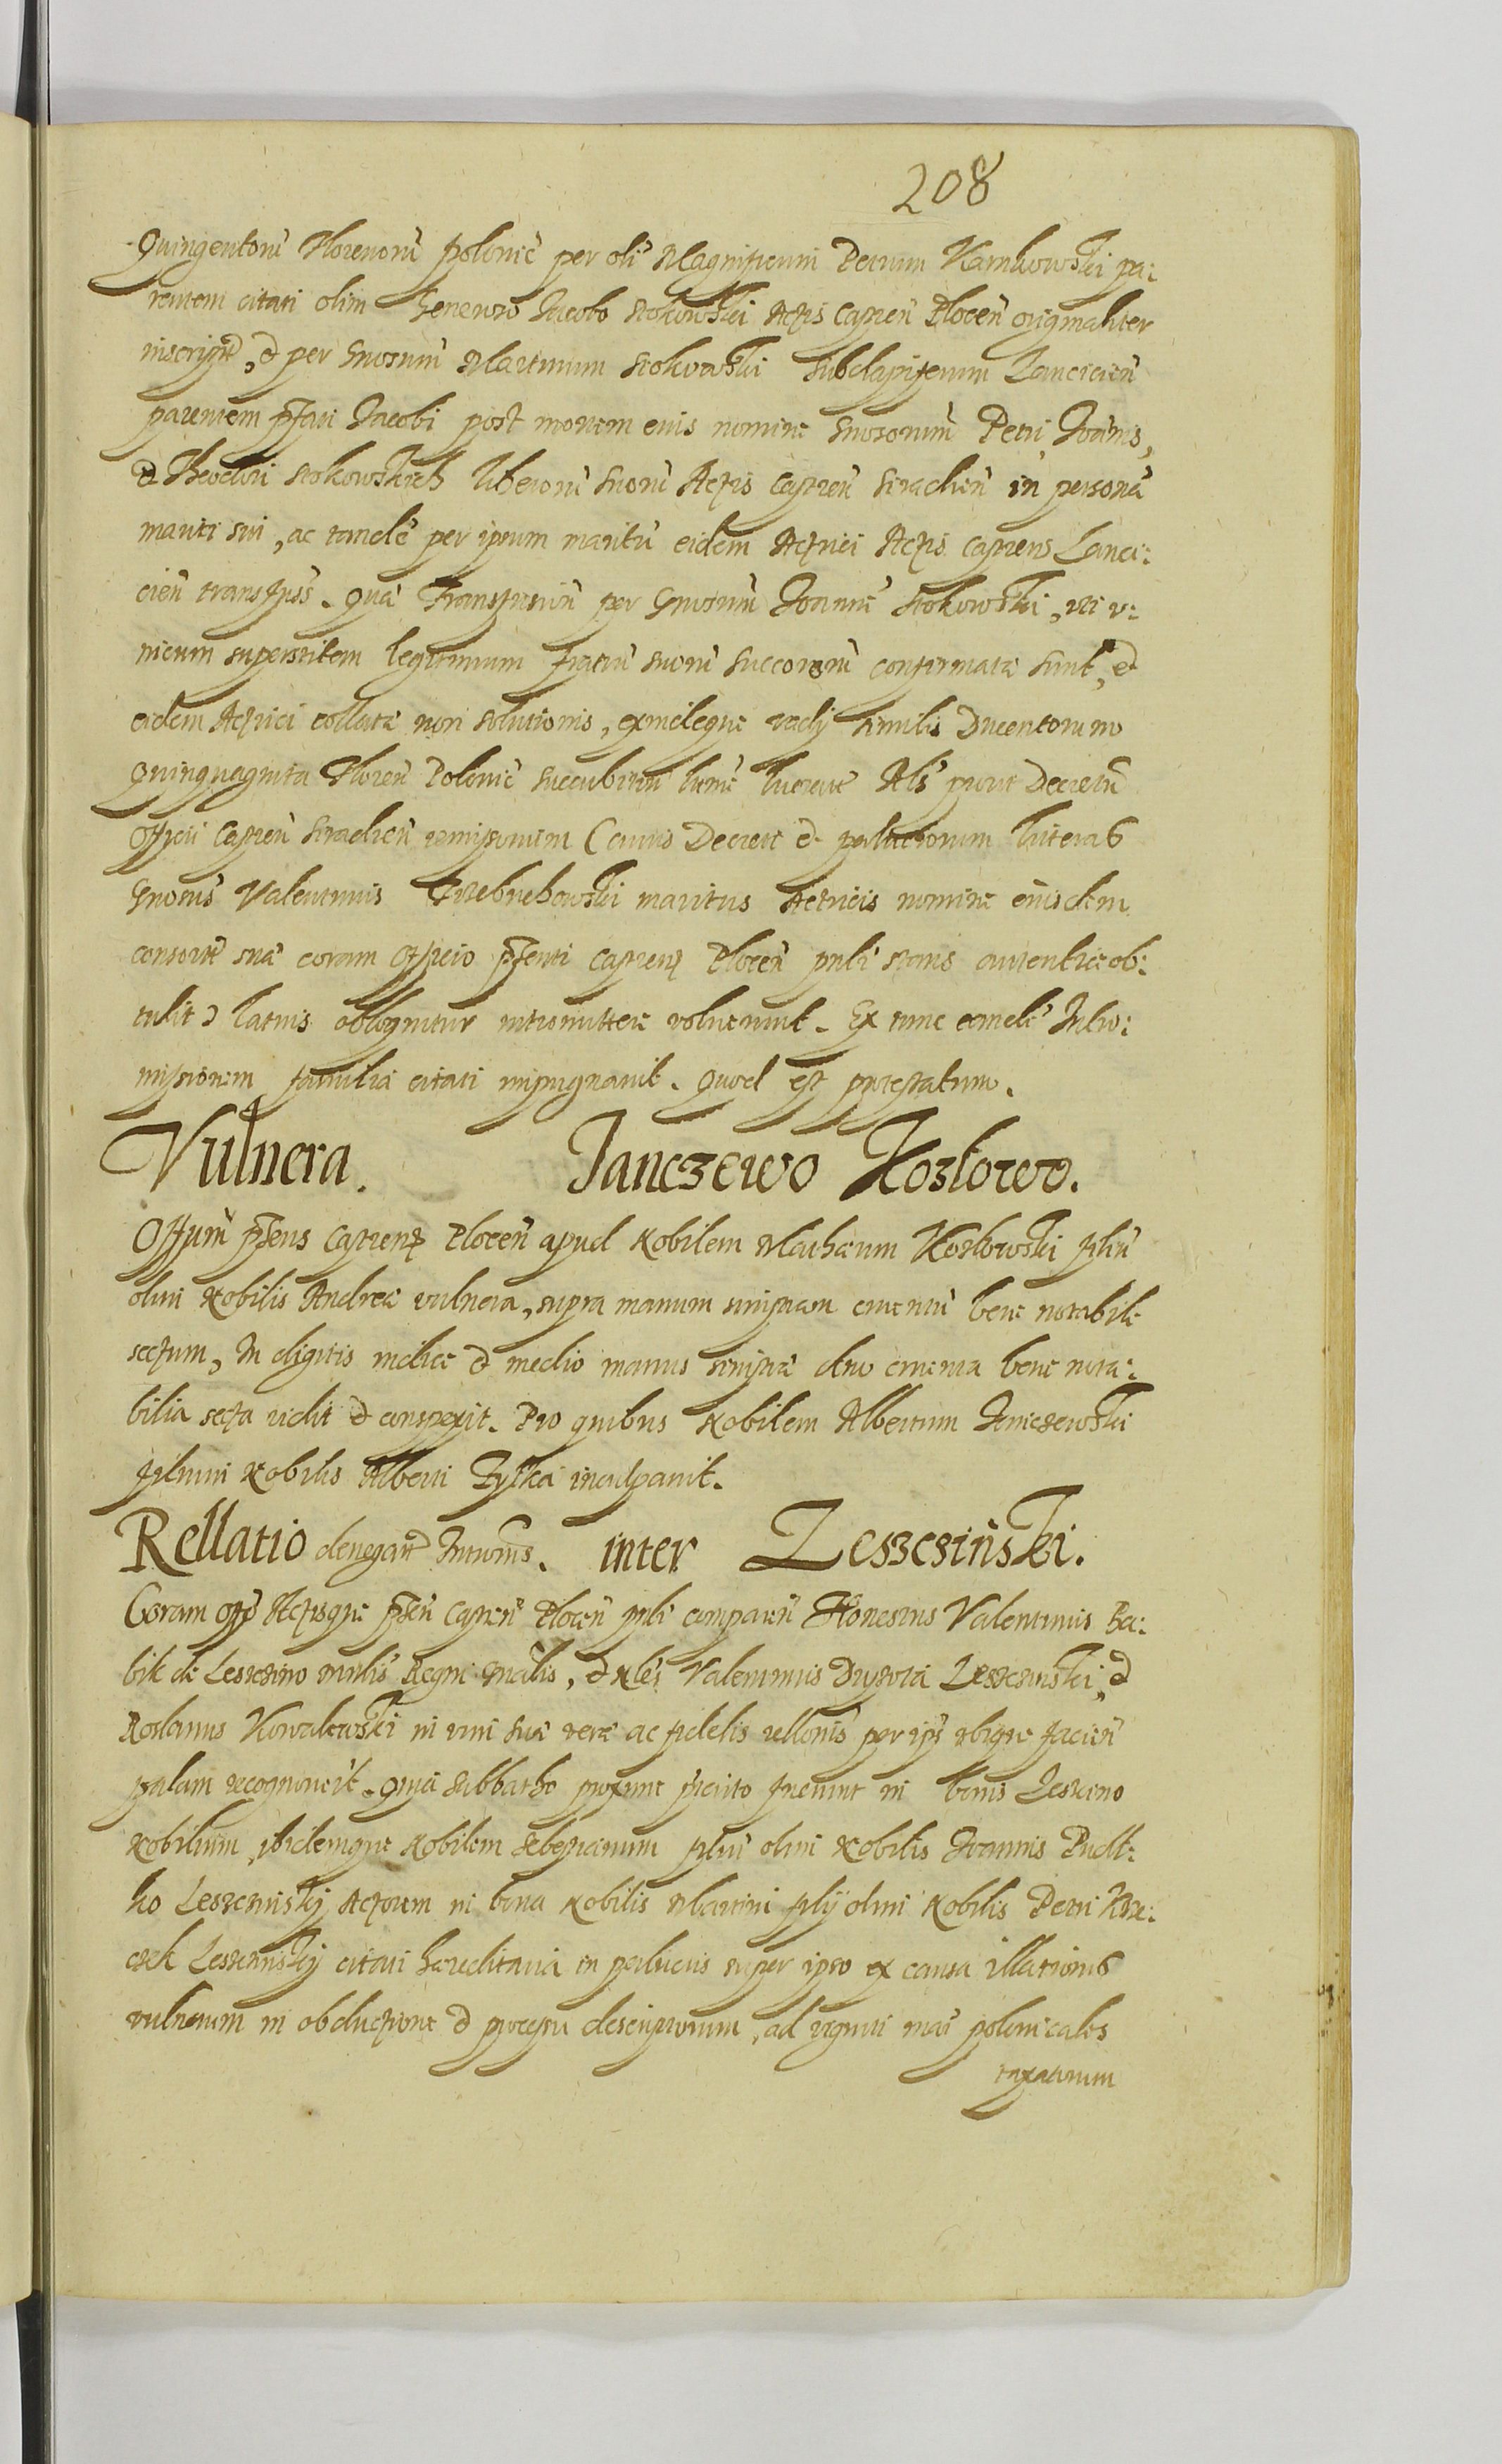 208
Quingentorū Florenorū polonic̄ per oli͂ Magnificum Petrum Karnkowski pa:
rentem citati olim Generoso Jacobo Stokowski Actis Castren̄ Plocen̄ originaliter
inscript̄, et per Gnosum Martinum Stokowski Subdapiferum Lancicien̄
parentem p̄fati Jacobi post mortem eius nomine Gnosorum Petri, Joānis,
et Theodori Stokowskich liberorū suorū Actis Castren̄ Siradien̄ in personā
mariti sui, ac tandē per ipsum maritū eidem Actrici Actis Castrens Lanci:
cien̄ transfuss. Quā Transfusion̄ per Gnosum Joannē Stokowski, uti v:
nicum superstitem legitimum fratrū suorū successorū confirmatæ sunt, et
eidem Actrici collatæ non solutionis, eximelegue vadij similis Ducentorum
Quinquaginta Floren̄ Polonic̄ succubitū lucrat Als prout Decretū
Officii Castren̄ Siradien̄ remissionem (cuius Decreti et palucrorum literas
Gnosus Valentinus Trzebuchowski maritus Actricis nomine eiusdem
consortis suæ coram Officio p̄senti Castren Plocen̄ pnlr stans autentice ob:
tulit) latius obloquitur intromittere voluerunt. Ex tunc eandē Intro:
missionem familia citati impugnavit. Quod est protestatum.
Vulnera. Janczewo Kozłowo.
Offium p̄sens Castren Plocen̄ apud Nobilem Mathæum Kozłowski filiū
olim Nobilis Andreæ vulnera, supra manum sinistram cruentū bene notabile
sectum, In digitis indice et medio manus sinistræ duo cruenta bene nota:
bilia secta vidit et conspexit. Pro quibus Nobilem Albertum Janczewski
filium Nobilis Alberti Zyska inculpavit.
Rellatio denegatæ Introms. inter Leszcziński.
Coram offo Actisque p̄sen̄ Castren̄ Plocen̄ pnlr comparen̄ Honestus Valentinus Ba:
bik de Leszczino mnlis Regni Gnalis, et Nles Valentinus Dysota Leszczinski, et
Roslanus Kowalewski in vim suæ veræ ac fidelis rellonis per ips ubique facien̄
palam recognoverūt. Quia sabbatho proxime præterito fuerunt in bonis Leszczino
Nobilium, ibidemque Nobilem Sebestianum filiū olim Nobilis Joannis Pudl:
ko Leszczinskij Actorem in bona Nobilis Martini filij olim Nobilis Petri Krze:
czek Leszczinskij citati hæreditaria in palucris super ipso ex causa illationis
vulnerum in obductione et processu descriptorum, ad viginti mar polonicales
taxatorum